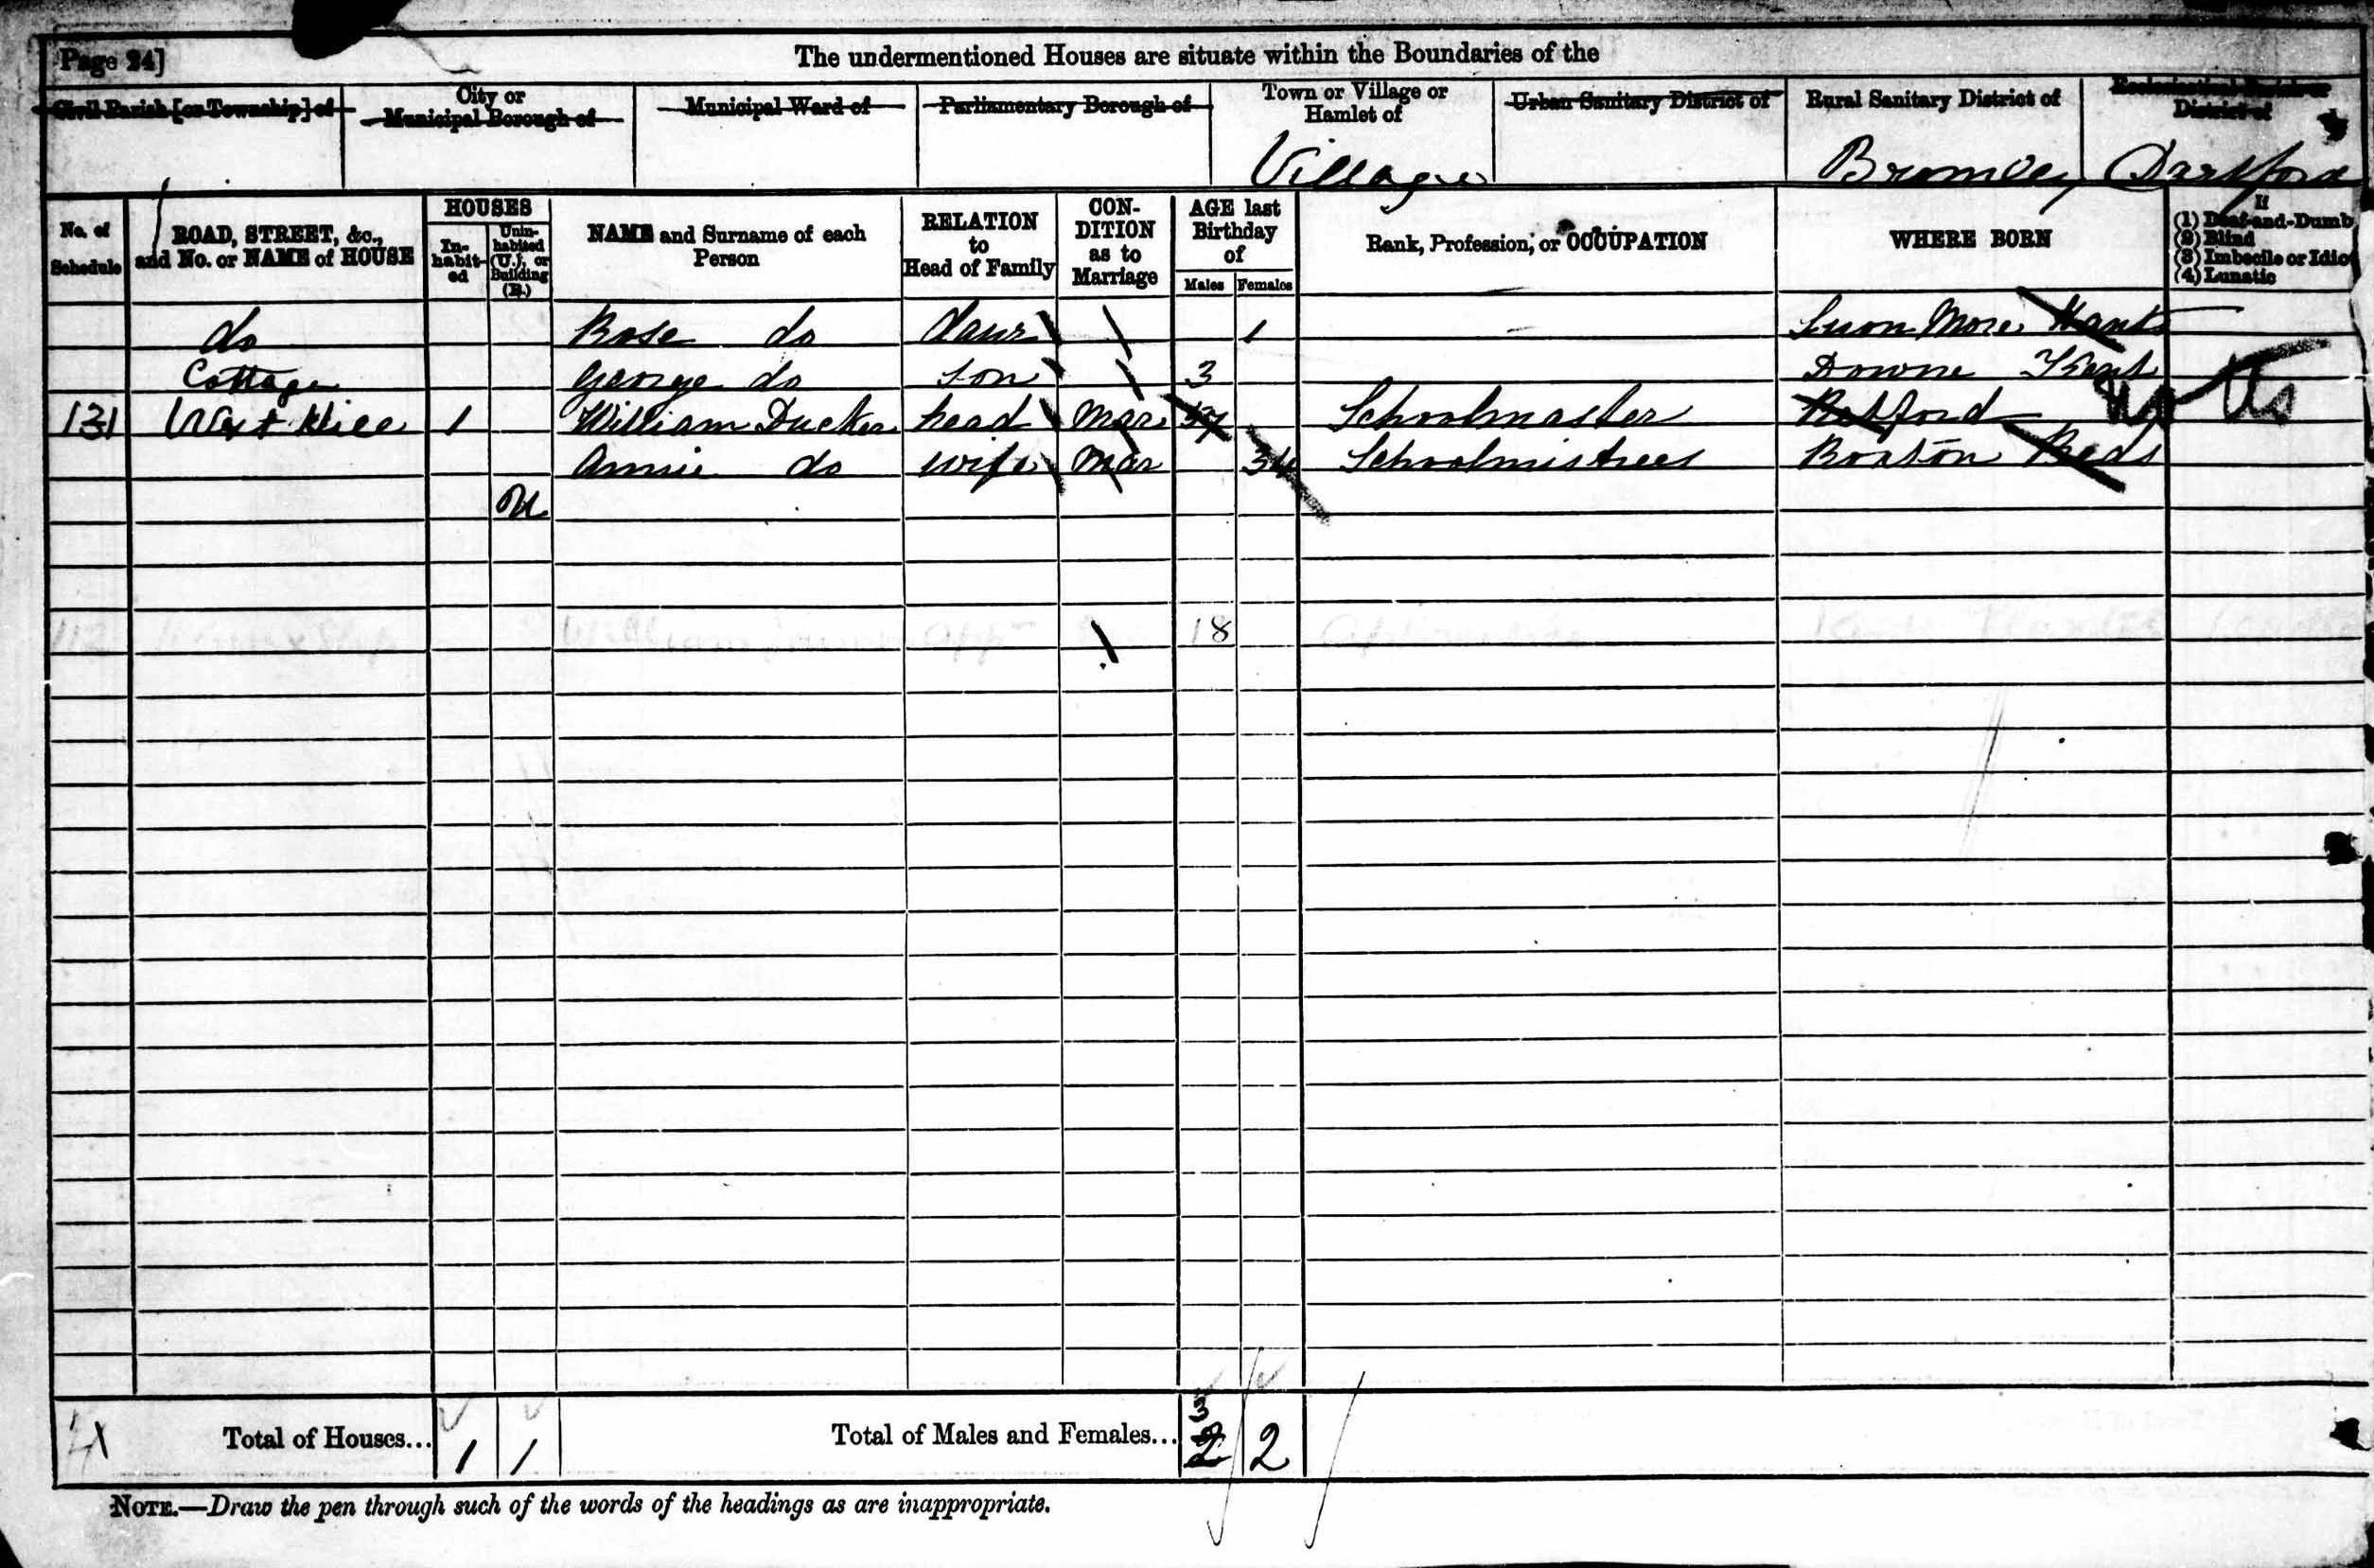 Page 24]
The undermentioned Houses are situate within the Boundaries of the
Civil Parish [or Township] of
City or Municipal Borough of
Municipal Ward of
Parliamentary Borough of
Town or Village or Hamlet of
Urban Sanitary District of
Rural Sanitary District of
Ecclesiastical Parish or District of
Village
Bromley
Dartford
No. of Schedule
ROAD, STREET, &c., and No. or NAME of HOUSE
HOUSES
In-habit-ed
Unin-habited (U.), or Building (B.)
NAME and Surname of each Person
RELATION to Head of Family
CON-DITION as to Marriage
AGE last Birthday of
Males
Females
Rank, Profession, or OCCUPATION
WHERE BORN
If
(1) Deaf-and-Dumb
(2) Blind
(3) Imbecile or Idiot
(4) Lunatic
do Rose do daur 1 More Hants
Cottage George do son 3 Downe Kent
131 West Hill 1 William Ducker head Mar 37 Schoolmaster Retford Notts
Annie do wife Mar 34 Schoolmistress Beds
U
18
Total of Houses... 1 1
Total of Males and Females... 3 2 2
NOTE.—Draw the pen through such of the words of the headings as are inappropriate.